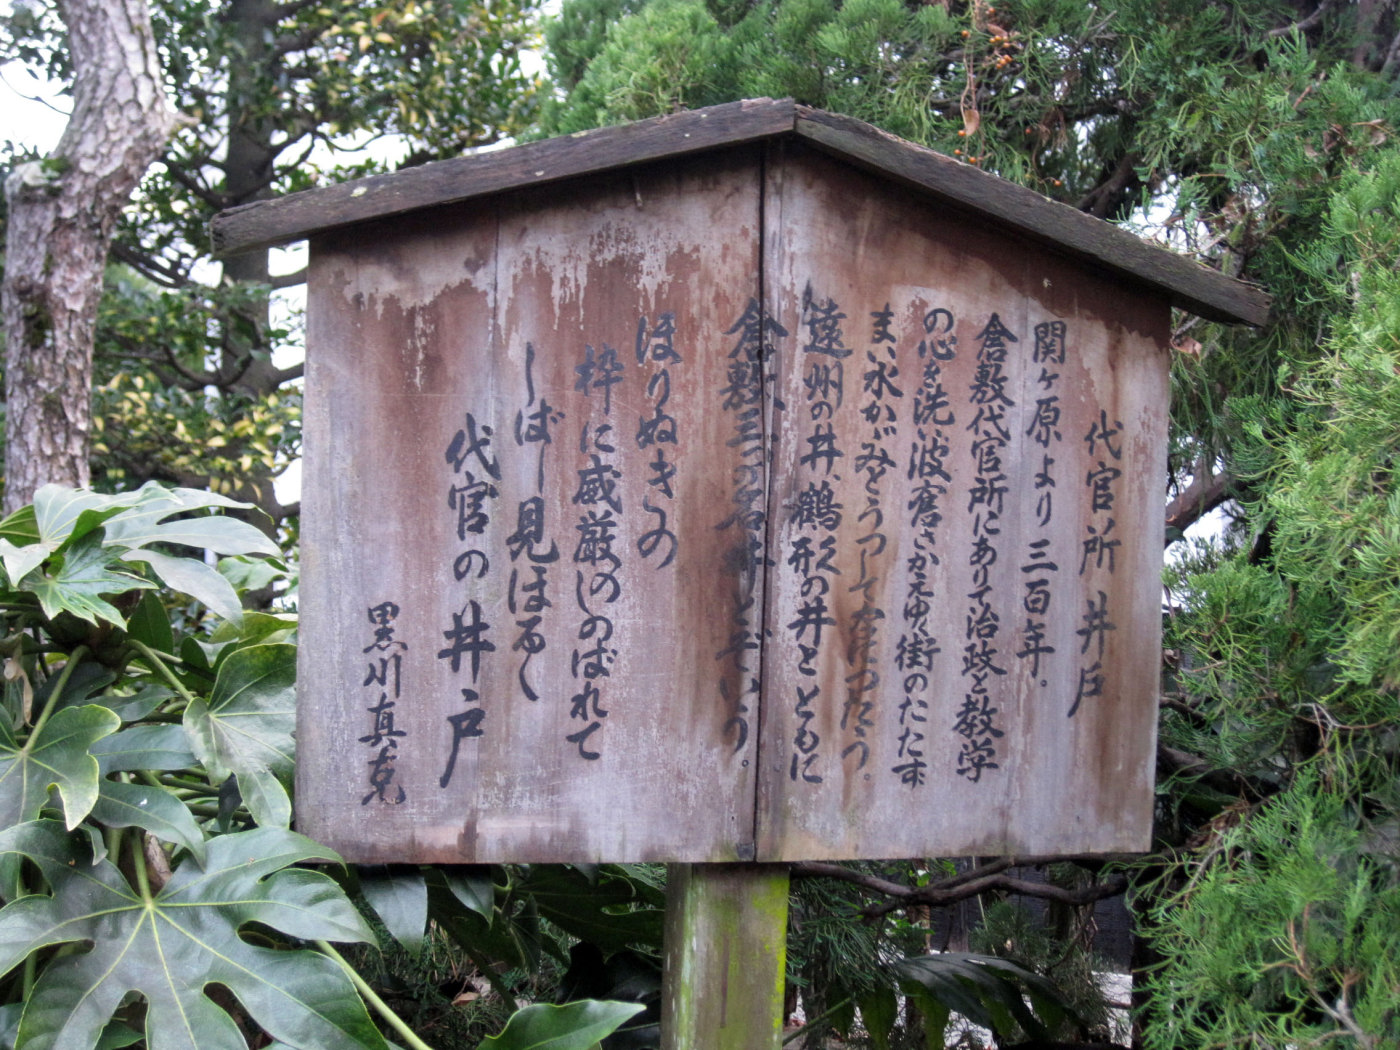 代官所井戸
関ヶ原より三百年。
倉敷代官所にありて治政と教学
の心を洗い波宿さかえゆく街のたたず
まい水かゞみとうつして来つたう。
遠州の井、鶴形の井とともに
倉敷三つ名井とぞいう。
ほりぬきの
枠に威厳のしのばれて
しばし見ほるゝ
代官の井戸
黒川真克